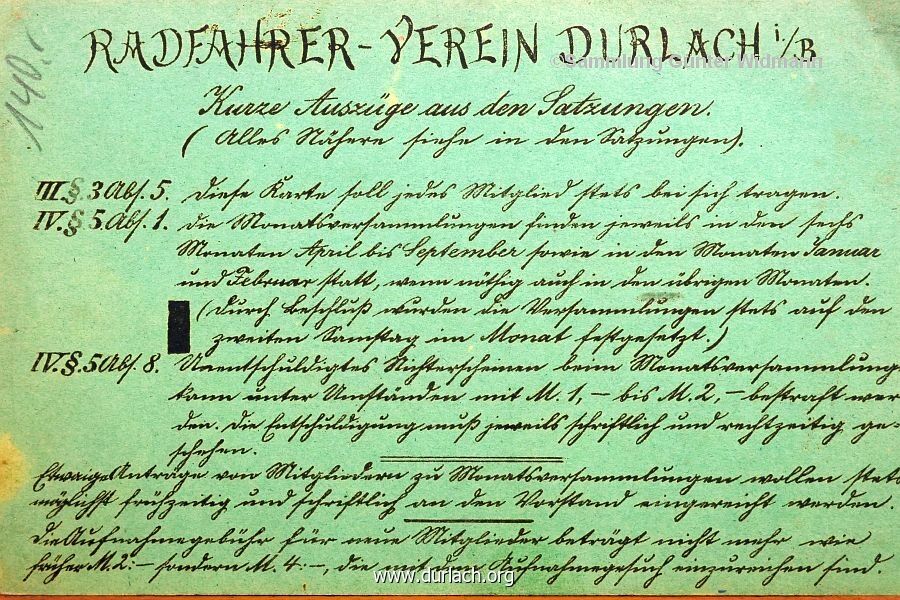 140.
RADFAHRER-VEREIN DURLACH i/B
©Sammlung Günter Widmann
Kurze Auszüge aus den Satzungen.
(Alles Nähere siehe in den Satzungen).
III. § 3 Abs. 5. Diese Karte soll jedes Mitglied stets bei sich tragen.
IV. § 5. Abs. 1. Die Monatsversammlungen finden jeweils in den sechs
Monaten April bis September sowie in den Monaten Januar
und Februar statt, wenn nötig auch in den übrigen Monaten.
(Durch Beschluß wurden die Versammlungen stets auf den
zweiten Samstag im Monat festgesetzt.)
IV. §. 5 Abs. 8. Unentschuldigtes Nichterscheinen beim Monatsversammlung
kann unter Umständen mit M. 1,- bis M. 2,- bestraft wer
den. Die Entschuldigung muß jeweils schriftlich und rechtzeitig ge=
schehen.
Etwaige Anträge von Mitgliedern zu Monatsversammlungen wollen stets
möglichst frühzeitig und schriftlich an den Vorstand eingereicht werden.
Die Aufnahmegebühr für neue Mitglieder beträgt nicht mehr wie
früher M. 2:- sondern M. 4:-, die mit dem Aufnahmegesuch einzureichen sind.
www.durlach.org